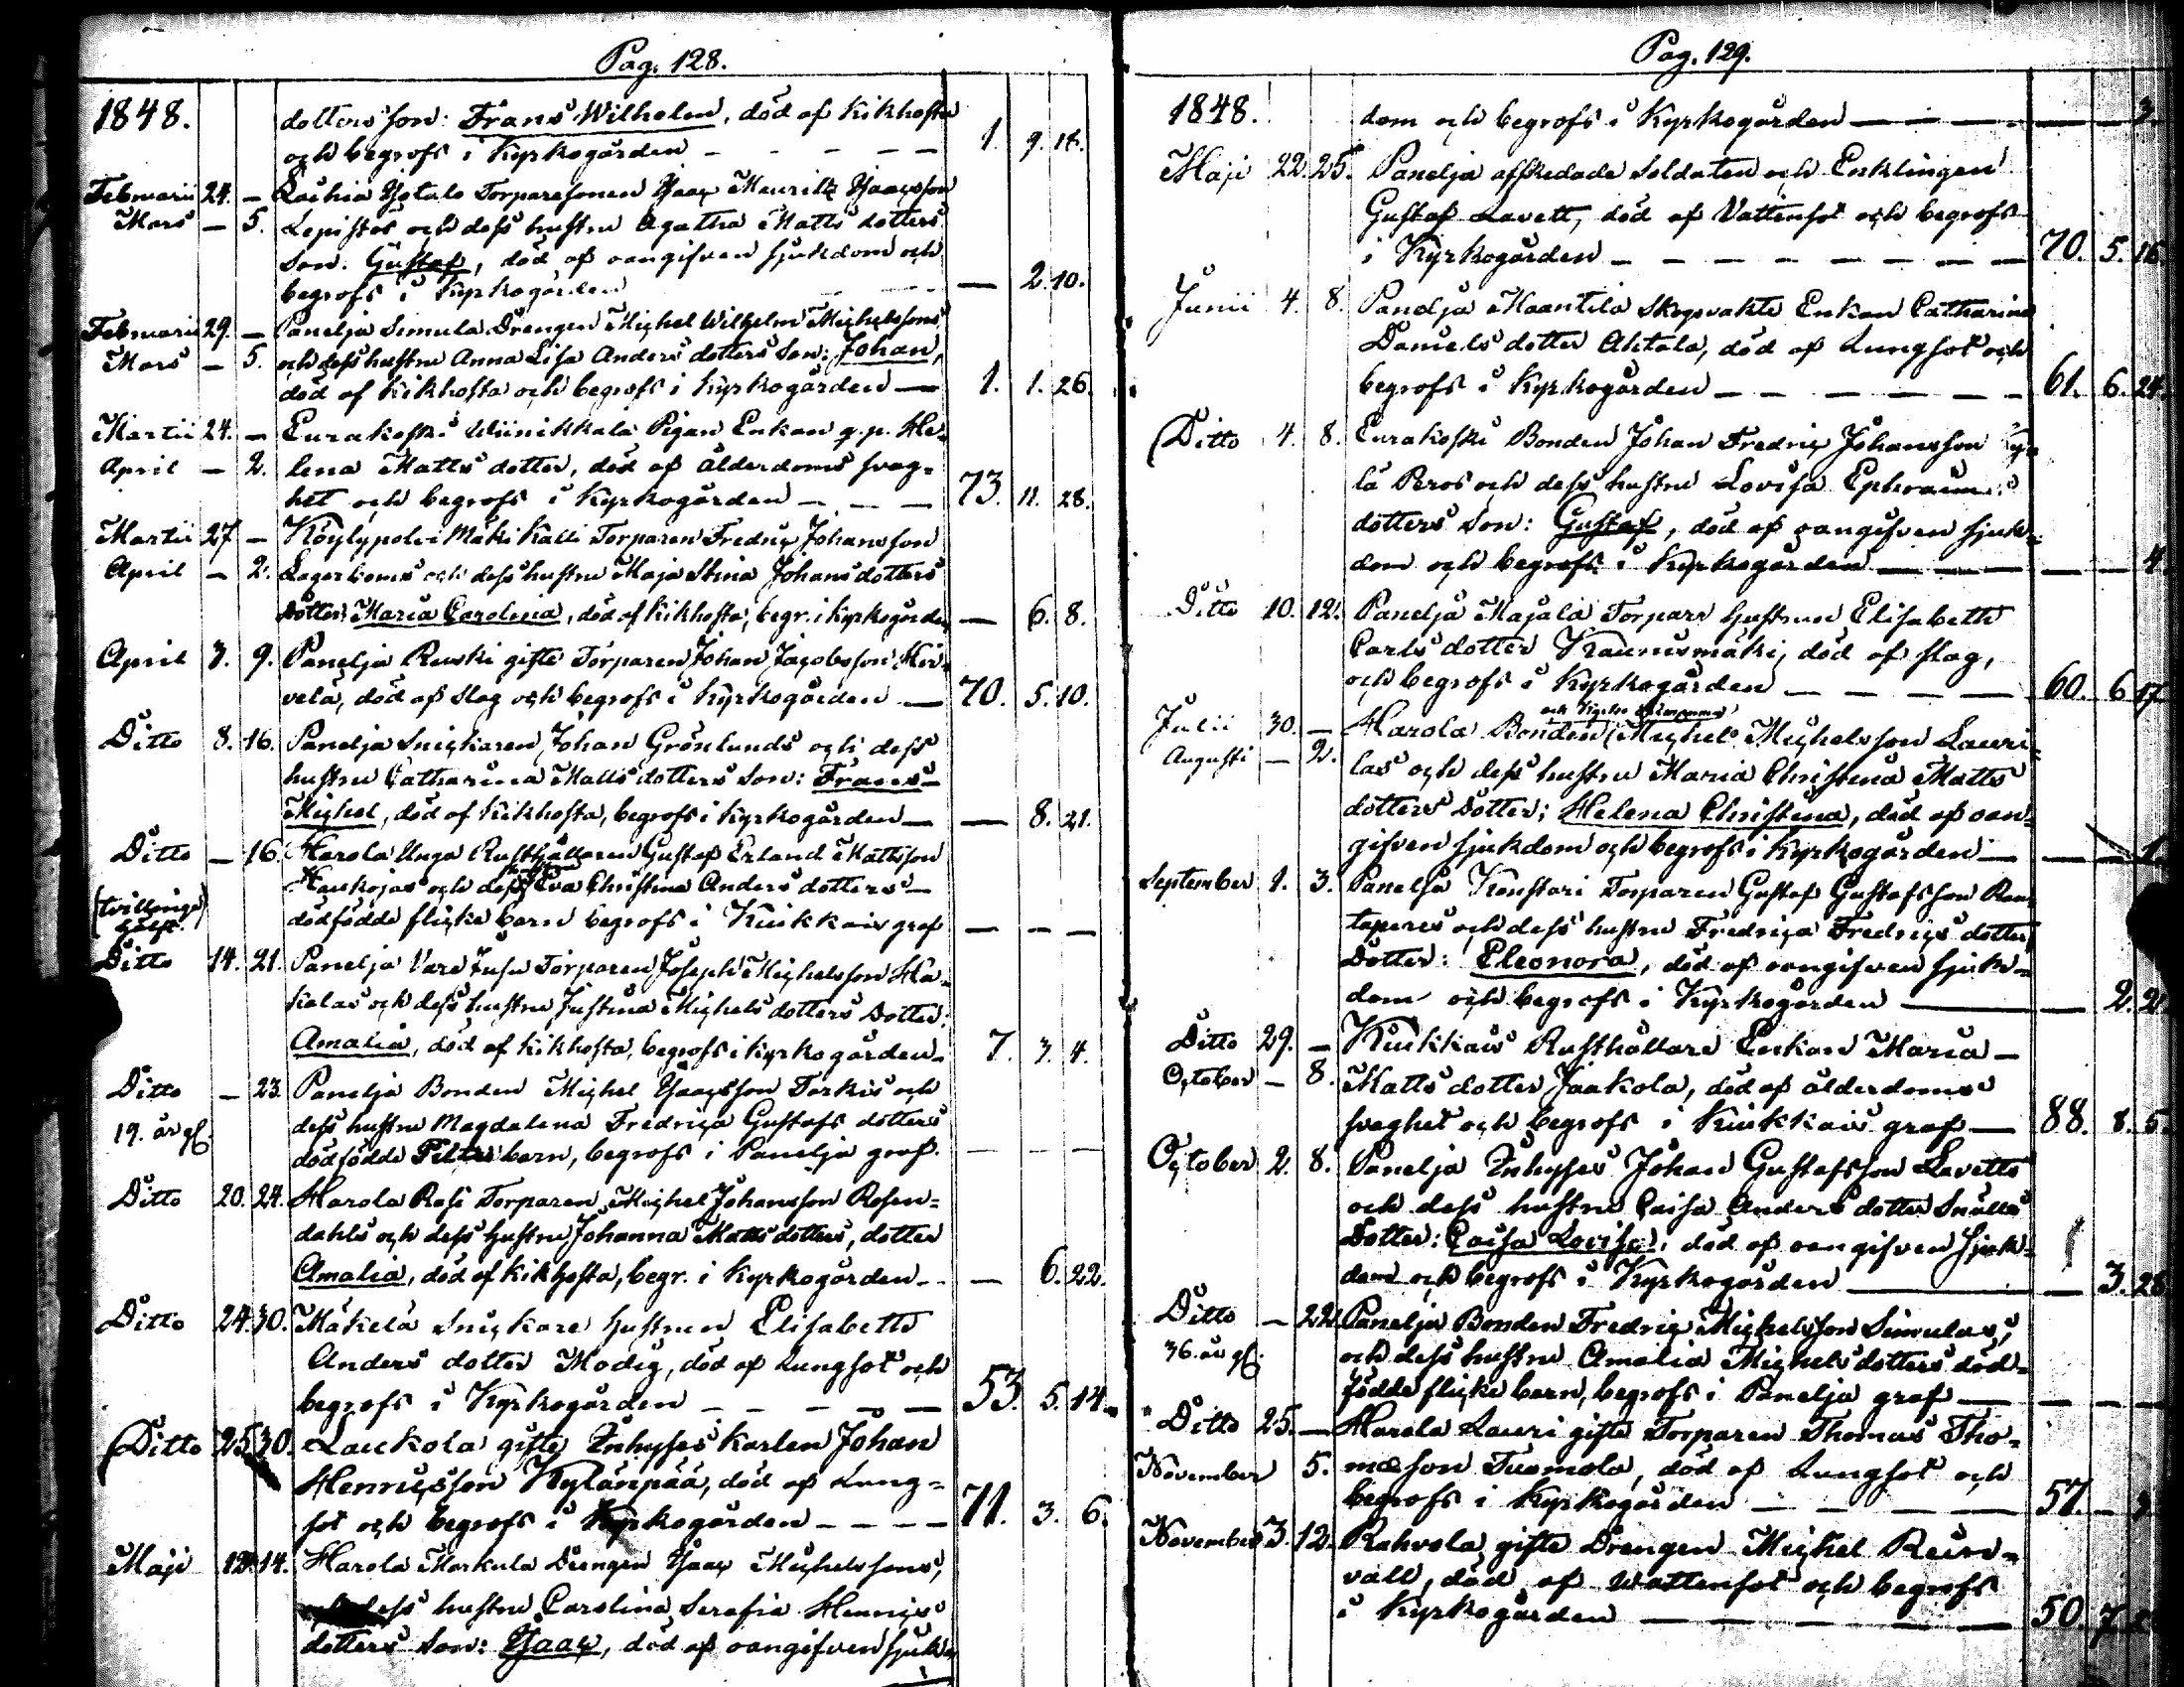 Pag. 128.
1848. dotters son: Frans Wilhelm, död af Kikhosta
och begrofs i Kyrkogården — — — — — 1. 9. 18.
Februarii 24. — Torparesonen Isaac Mauritz Isaacsson
Mars — 5. Lepistös och dess hustru Agatha Matts dotters
Son: Gustaf, död af oangifven sjukdom och
begrofs i Kyrkogården — 2. 10.
Februarii 29. — Panelja Simula Drengen Michel Wilhelm Michelssons
Mars — 5. och dess hustru Anna Lisa Anders dotters Son: Johan,
död af Kikhosta och begrofs i Kyrkogården — 1. 1. 26.
Martii 24. — Eurakoski Wiinikkala Pigan Enkan g. p. He-
April — 2. lena Matts dotter, död af ålderdoms svag-
het och begrofs i Kyrkogården — — — 73. 11. 28.
Martii 27 — Köylypolvi Mäki Kalli Torparen Fredric Johansson
April — 2. Lagerboms och dess hustru Maja Stina Johans dotters
Dotter: Maria Carolina, död af Kikhosta, begr. i Kyrkogården — 6. 8.
April 3. 9. Panelja Raski gifte Torparen Johan Jacobsson Hir-
velä, död af Slag och begrofs i Kyrkogården — 70. 5. 10.
Ditto 8. 16. Panelja Snickaren Johan Grönlunds och dess
hustru Catharina Matts dotters Son: Frans
Michel, död af Kikhosta, begrofs i Kyrkogården — — 8. 21.
Ditto — 16. Harola Unga Rusthållaren Gustaf Erland Mattsson
Haukojas och dess Eva Christina Anders dotters —
(tvillingar) dödfödde flicke barn begrofs i Kiukkais graf — — —
Ditto 14. 21. Panelja Vare Jusu Torparen Joseph Michelsson Ha-
kalas och dess hustru Justina Michels dotters Dotter:
Amalia, död af Kikhosta, begrofs i Kyrkogården — 7. 3. 4.
Ditto — 23. Panelja Bonden Michel Isaacsson Torkis och
19. år gl. dess hustru Magdalena Fredrica Gustafs dotters
dödfödde barn, begrofs i Panelja graf. — — —
Ditto 20. 24. Harola Rosi Torparen Michel Johansson Rosen-
dahls och dess hustru Johanna Matts dotters, dotter
Amalia, död af Kikhosta, begr. i Kyrkogården — — 6. 22.
Ditto 24. 30. Mäkelä Snickare hustrun Elisabeth
Anders dotter Modig, död af Lungsot och
begrofs i Kyrkogården — — — — — 53. 5. 14.
Ditto 25. 30. Laukola gifte Inhyses Karlen Johan
Henricsson Kylänpää, död af Lung-
sot och begrofs i Kyrkogården — — — — 71. 3. 6.
Maji 12. 14. Harola Markula Drengen Isaac Michelssons,
dess hustru Carolina Serafia Henrics
dotters Son: Isaac, död af oangifven sjuk-
Pag. 129.
1848. dom och begrofs i Kyrkogården — — — — — 3.
Maji 22. 25. Panelja affskedade Soldaten och Enklingen
Gustaf Lavett, död af Vattensot och begrofs
i Kyrkogården — — — — — — — — 70. 5. 16.
Junii 4. 8. Panelja Maantila Skogvakts Enkan Catharina
Daniels dotter Ahtola, död af Lungsot och
begrofs i Kyrkogården — — — — — 61. 6. 24.
Ditto 4. 8. Eurakoski Bonden Johan Fredric Johansson
Pros och dess hustru Lovisa Ephraims
dotters Son: Gustaf, död af oangifven sjuk-
dom och begrofs i Kyrkogården — — — — — 4.
Ditto 10. 12. Panelja Majala Torpare hustrun Elisabeth
Carls dotter Kraunismäki, död af slag,
och begrofs i Kyrkogården — — — — 60. 6. 17.
Julii 30. — Harola Bonden Michel Michelsson Lauri-
Augusti — 2. las och dess hustru Maria Christina Matts
dotters Dotter: Helena Christina, död af oan-
gifven sjukdom och begrofs i Kyrkogården — — — 1.
September 1. 3. Panelja Konstari Torparen Gustaf Gustafsson
och dess hustru Fredrica Fredrics dotters
Dotter: Eleonora, död af oangifven sjuk-
dom och begrofs i Kyrkogården — — 2. 2
Ditto 29. — Kiukkais Rusthållare Enkan Maria —
October — 8. Matts dotter Jaakola, död af ålderdoms
svaghet och begrofs i Kiukkais graf — 88. 8. 5.
October 2. 8. Panelja Inhyses Johan Gustafsson Lavetts
och dess hustru Caisa Anders dotter Snälls
Dotter: Caisa Lovisa, död af oangifven sjuk-
dom och begrofs i Kyrkogården — — 3. 28.
Ditto — 22. Panelja Bonden Fredric Michelsson Simulas,
36. år gl. och dess hustru Amalia Michels dotters död-
födde flicke barn, begrofs i Panelja graf — — — —
Ditto 25. — Harola Lauri gifte Torparen Thomas Tho-
November 5. mæson Tuomola, död af Lungsot och
begrofs i Kyrkogården — — — — 57. —
November 3. 12. Rahvola gifte Drengen Michel Rein-
vall, död af Wattensot och begrofs
i Kyrkogården — — — — — 50. 7.